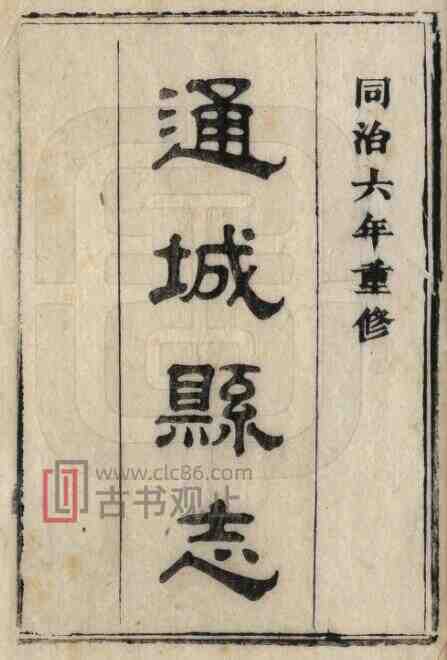 同治六年重修
通城縣志
www.clc86.com
古书观止